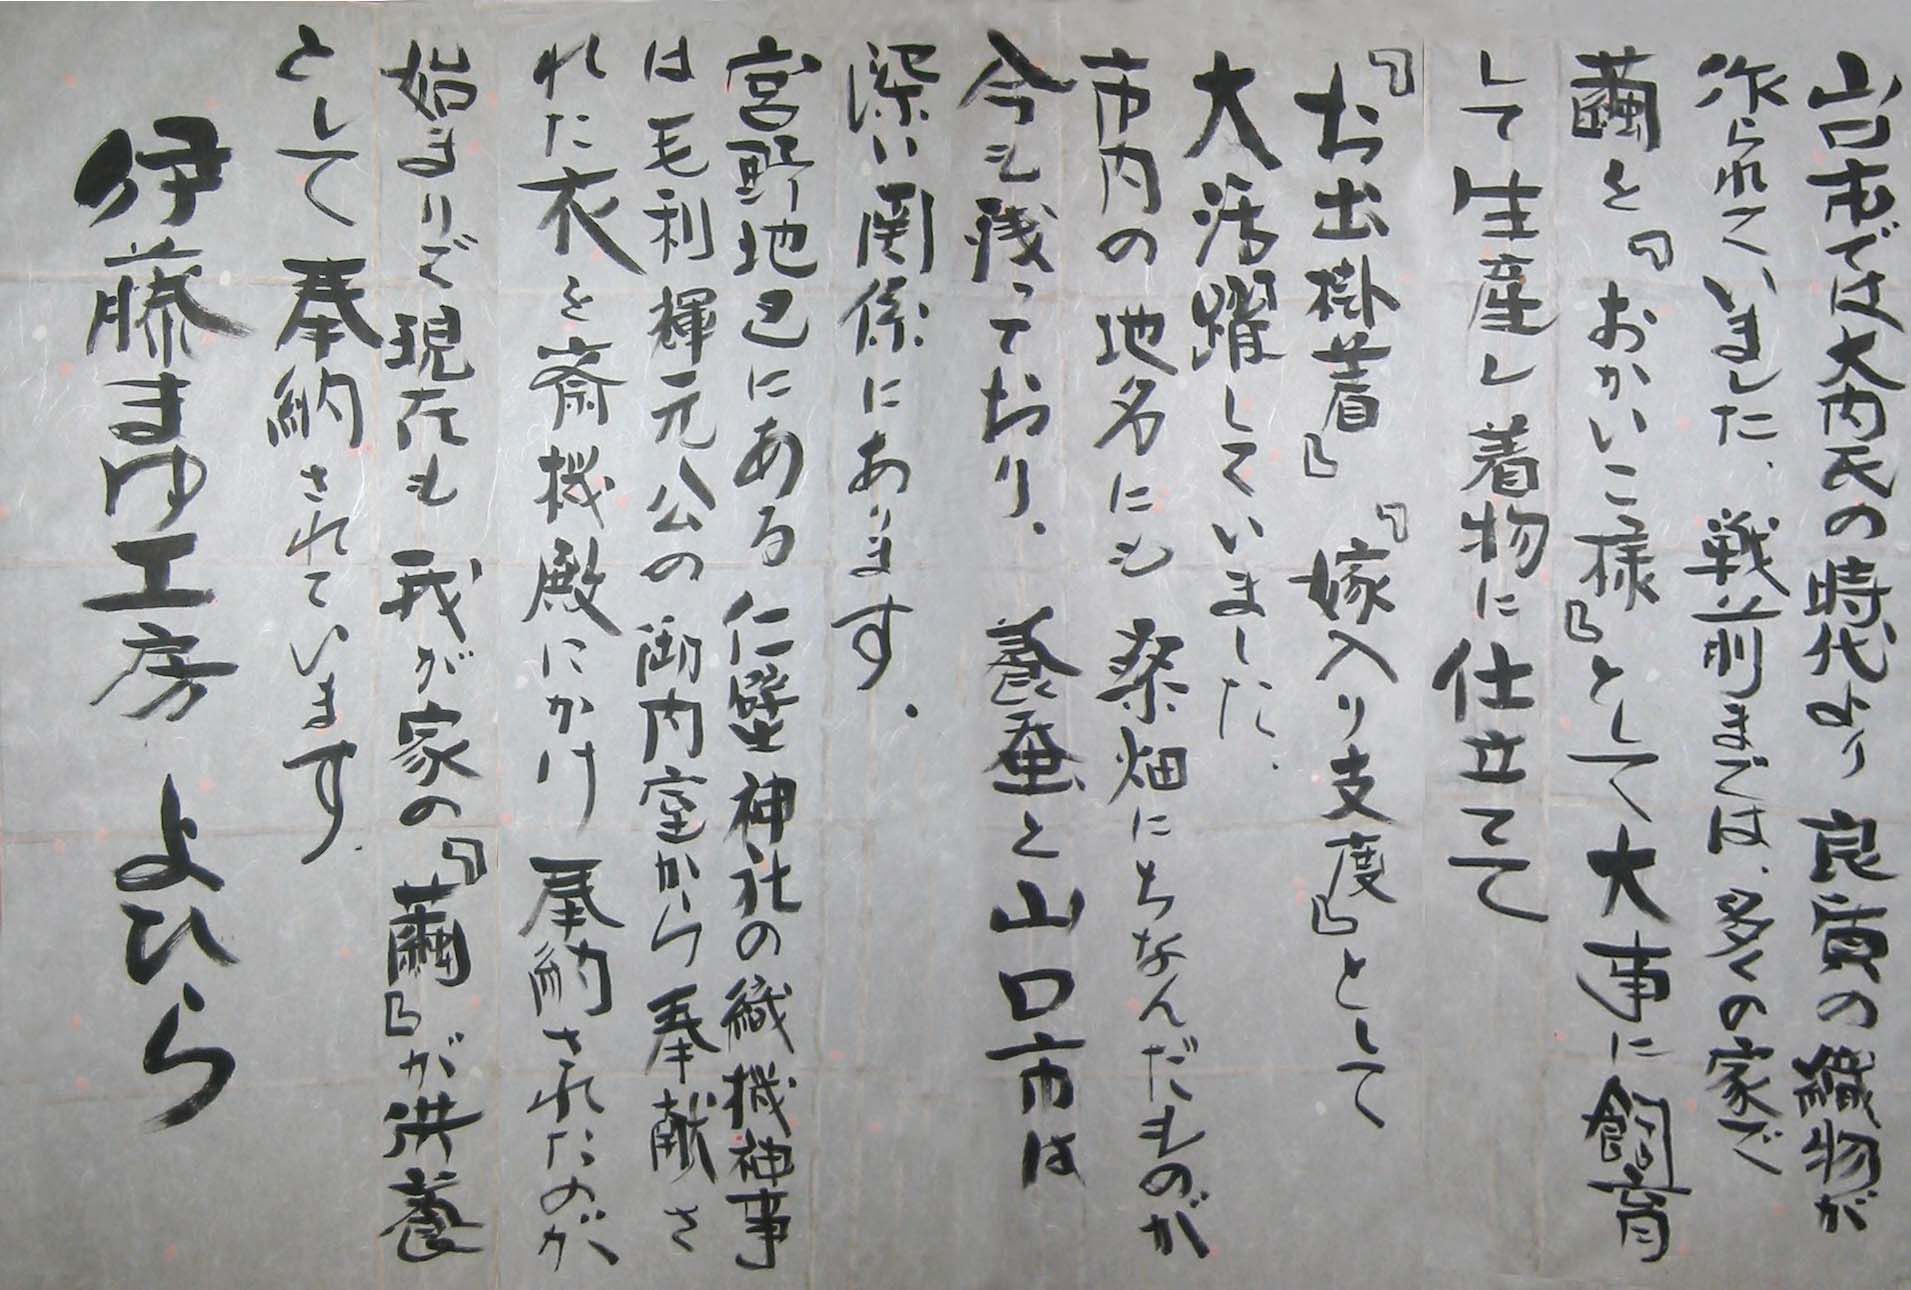 山口市では大内氏の時代より良質の織物が
作られていました、戦前までは、多くの家で
繭を『おかいこ様』として大事に飼育
して生産し着物に仕立てて
『お出掛着』『嫁入り支度』として
大活躍していました。
市内の地名にも桑畑にちなんだものが
今も残っており、養蚕と山口市は
深い関係にあります。
宮野地区にある仁壁神社の織機神事
は毛利輝元公の御内室から奉献さ
れた衣を斎機殿にかけ奉納されたのが、
始まりで現在も我が家の『繭』が供養
として奉納されています。
伊藤まゆ工房 よひら